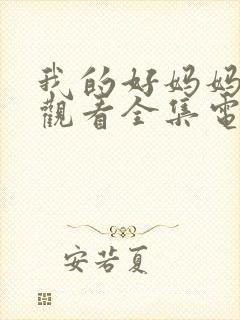 我的好妈妈
觀看全集電
安若夏